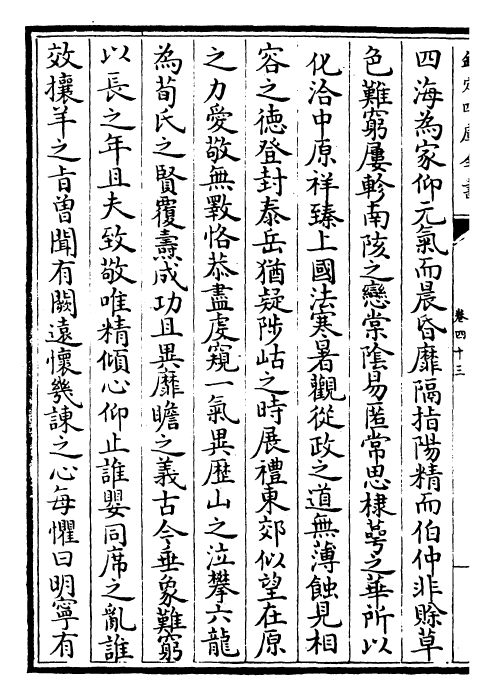 欽定四庫全書
卷四十三
四海為家仰元氣而晨昏靡隔指陽精而伯仲非賒草
色難窮屢軫南陔之戀棠陰易匿常思棣萼之華所以
化洽中原祥臻上國法寒暑觀從政之道無薄蝕見相
容之徳登封泰岳猶疑陟岵之時展禮東郊似望在原
之力愛敬無斁恪恭盡虔窺一氣異歴山之泣攀六龍
為荀氏之賢覆燾成功且異靡瞻之義古今垂象難窮
以長之年且夫致敬唯精傾心仰止誰嬰同席之亂誰
效攘羊之㫖曽聞有闕逺懐幾諫之心每懼曰明寧有